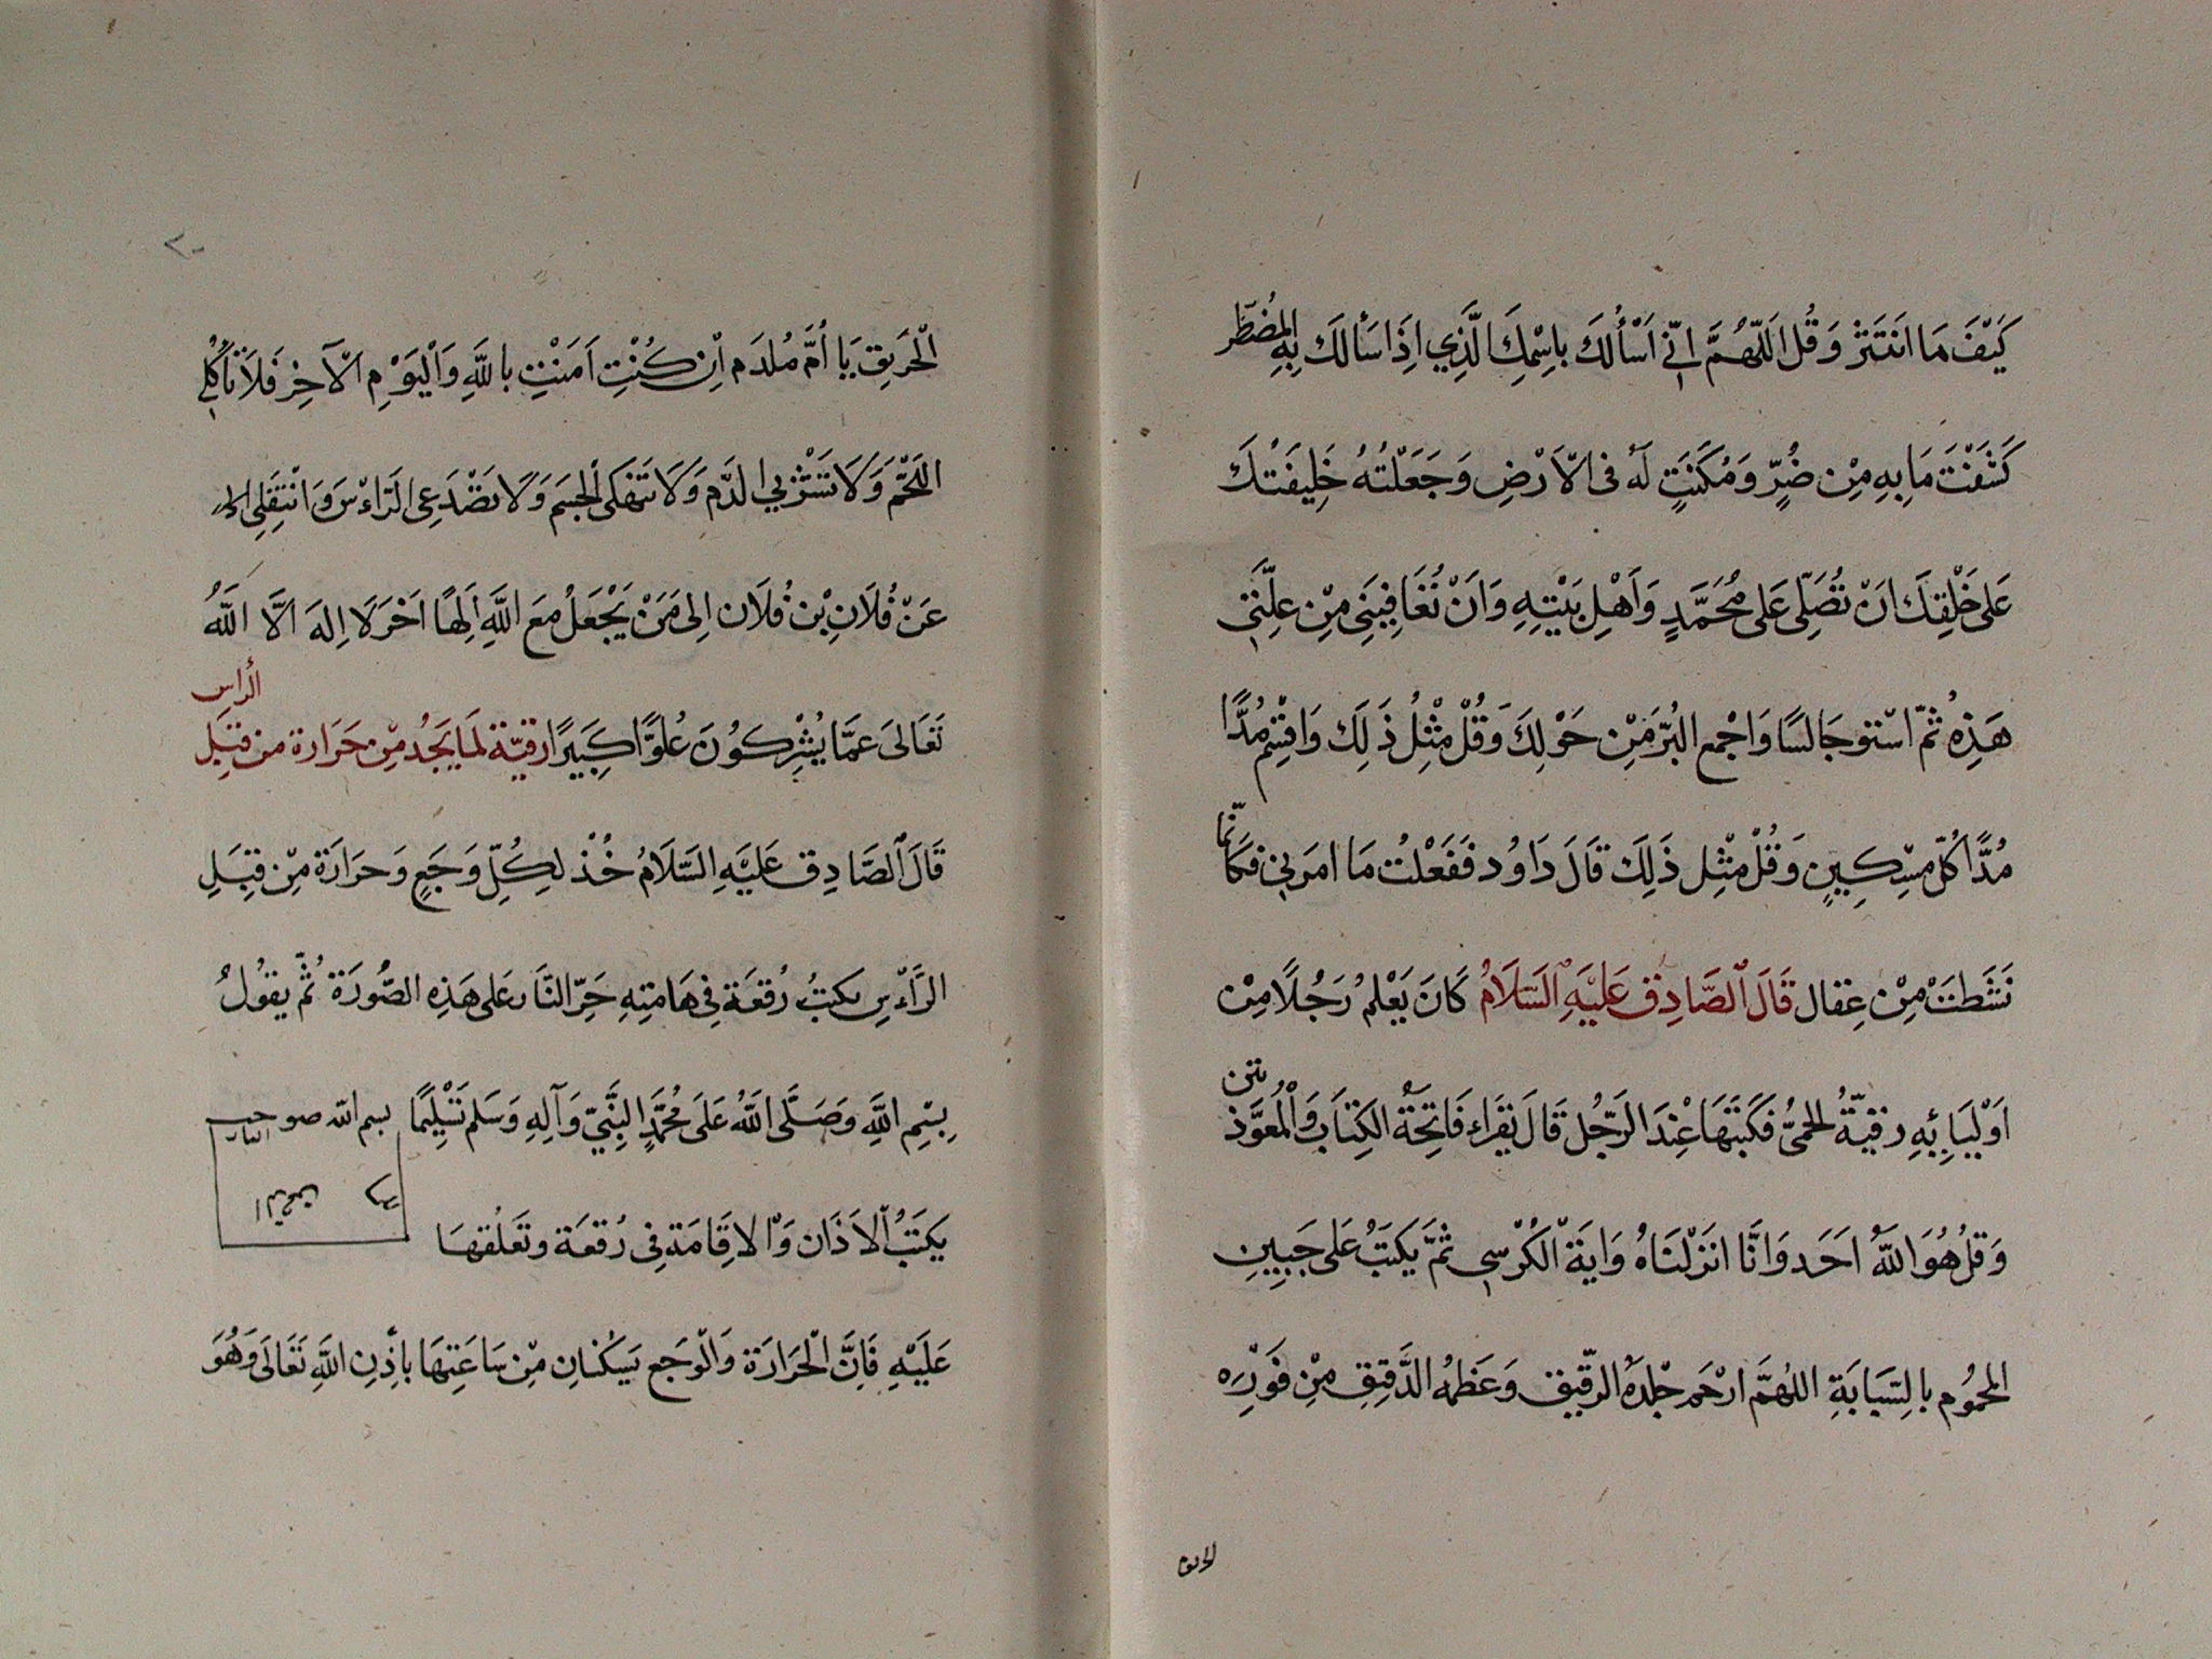 كَيْفَ مَا انْتَثَرَ وَقُل اَللّٰهُمَّ اِنّي اَسْأَلُكَ بِاسْمِكَ الَّذِي اِذَا سَأَلَكَ بِهِ المُضْطَّر
كَشَفْتَ مَا بِهِ مِنْ ضُرٍّ وَمَكَنْتَ لَهُ فى الْاَرْضِ وَجَعَلْتَهُ خَلِيفَتَكَ
عَلى خَلْقِكَ اَنْ تُصَلّى عَلى مُحَمَّدٍ وَاَهْلِ بَيْتِهِ وَاَنْ تُعَافِيَنِى مِنْ عِلَّتِي
هَذِهِ ثُمَّ اسْتَو جَالسًا وَاجْمع البُرَّ مِنْ حَوْلِكَ وَقُلْ مِثْلُ ذَلِكَ وَاقْسِم مُدًّا
مُدًّا كُلّ مِسْكِينٍ وَقُلْ مِثْل ذَلِكَ قَالَ دَاوُد فَفَعْلتُ مَا امَرَني فكَانّما
نَشَطتَ مِنْ عِقال قَالَ الصَّادِق عَليَهِ السَّلَامُ كَانَ يَعْلمُ رَجُلًا مِنْ
اَوْليَائِهِ رقيّةُ الحمىُّ فَكَتبَهَا عِنْدَ الرَّجُل قَالَ يَقراء فَاتِحَةُ الكِتَابَ وَالْمُعَوَّذتين
وَقلُ هُوَ اللّهُ اَحَد وَانَّا انَزَلْنَاهُ وَايَةْ الْكُرْسي ثمَّ يكتبُ عَلى جَبِينِ
المحمُوم بالِسّبَابَةِ اللهُمَّ ارْحَم جْلدَهُ الرّقيق وَعَظمهُ الدَّقِيق مِنْ فَوْرِه
الحريق
٢٠
الْحَرِيق يَا اُمَّ مُلدَم اْن كُنْتِ اَمَنْتِ بالله وَالْيَوْمِ الْآخِرِ فَلَا تَأكُلِي
اللَحْمَ وَلَا تَشْرَبي الدَّم وَلَا تَنهَكى الْجِسَم وَلَا تصْدَعِى الرَاءْس وَانْتَقِلى
عَنْ فُلَانِ بْن فُلَان اِلى مَنْ يَجْعَلُ معَ اللهِ اَلِهًا اخَرَ لَا اِلهَ الَّا اللّهُ
تَعَالىَ عَمَّا يُشْرِكوُنَ عُلوًّا كَبِيَرًا رقيّة لمَا يَجُد مِنْ حَرَارة من قِبَل الراس
قَالَ الصَّادِق عَليَهِ السَّلَامُ خُذ لكُلِّ وَجَعٍ وَحرَارَة مِنْ قِبَلِ
الرَّاْسِ يكتبُ رُقعَة فِي هَامَتِهِ حَرِّ النَّار عَلى هَذِهِ الصُّورَة ثُمّ يقوُلُ
بِسْمِ اللهِ وَصَلَّى اللهُ عَلَى مُحَمَّدٍ النَّبِيّ وَآلِهِ وَسَلم تَسْلِيمًا بسم الله
يَكتَبُ الاَذَان وَالاِقَامَة فى رُقعَة وتعَلُقهَا
عَلَيْهِ فَاِنَّ الْحَرَارَة وَالْوَجَع يسكنانِ مِنْ سَاعَتِهَا بأِذِن الله تَعَالَى وَهُوَ